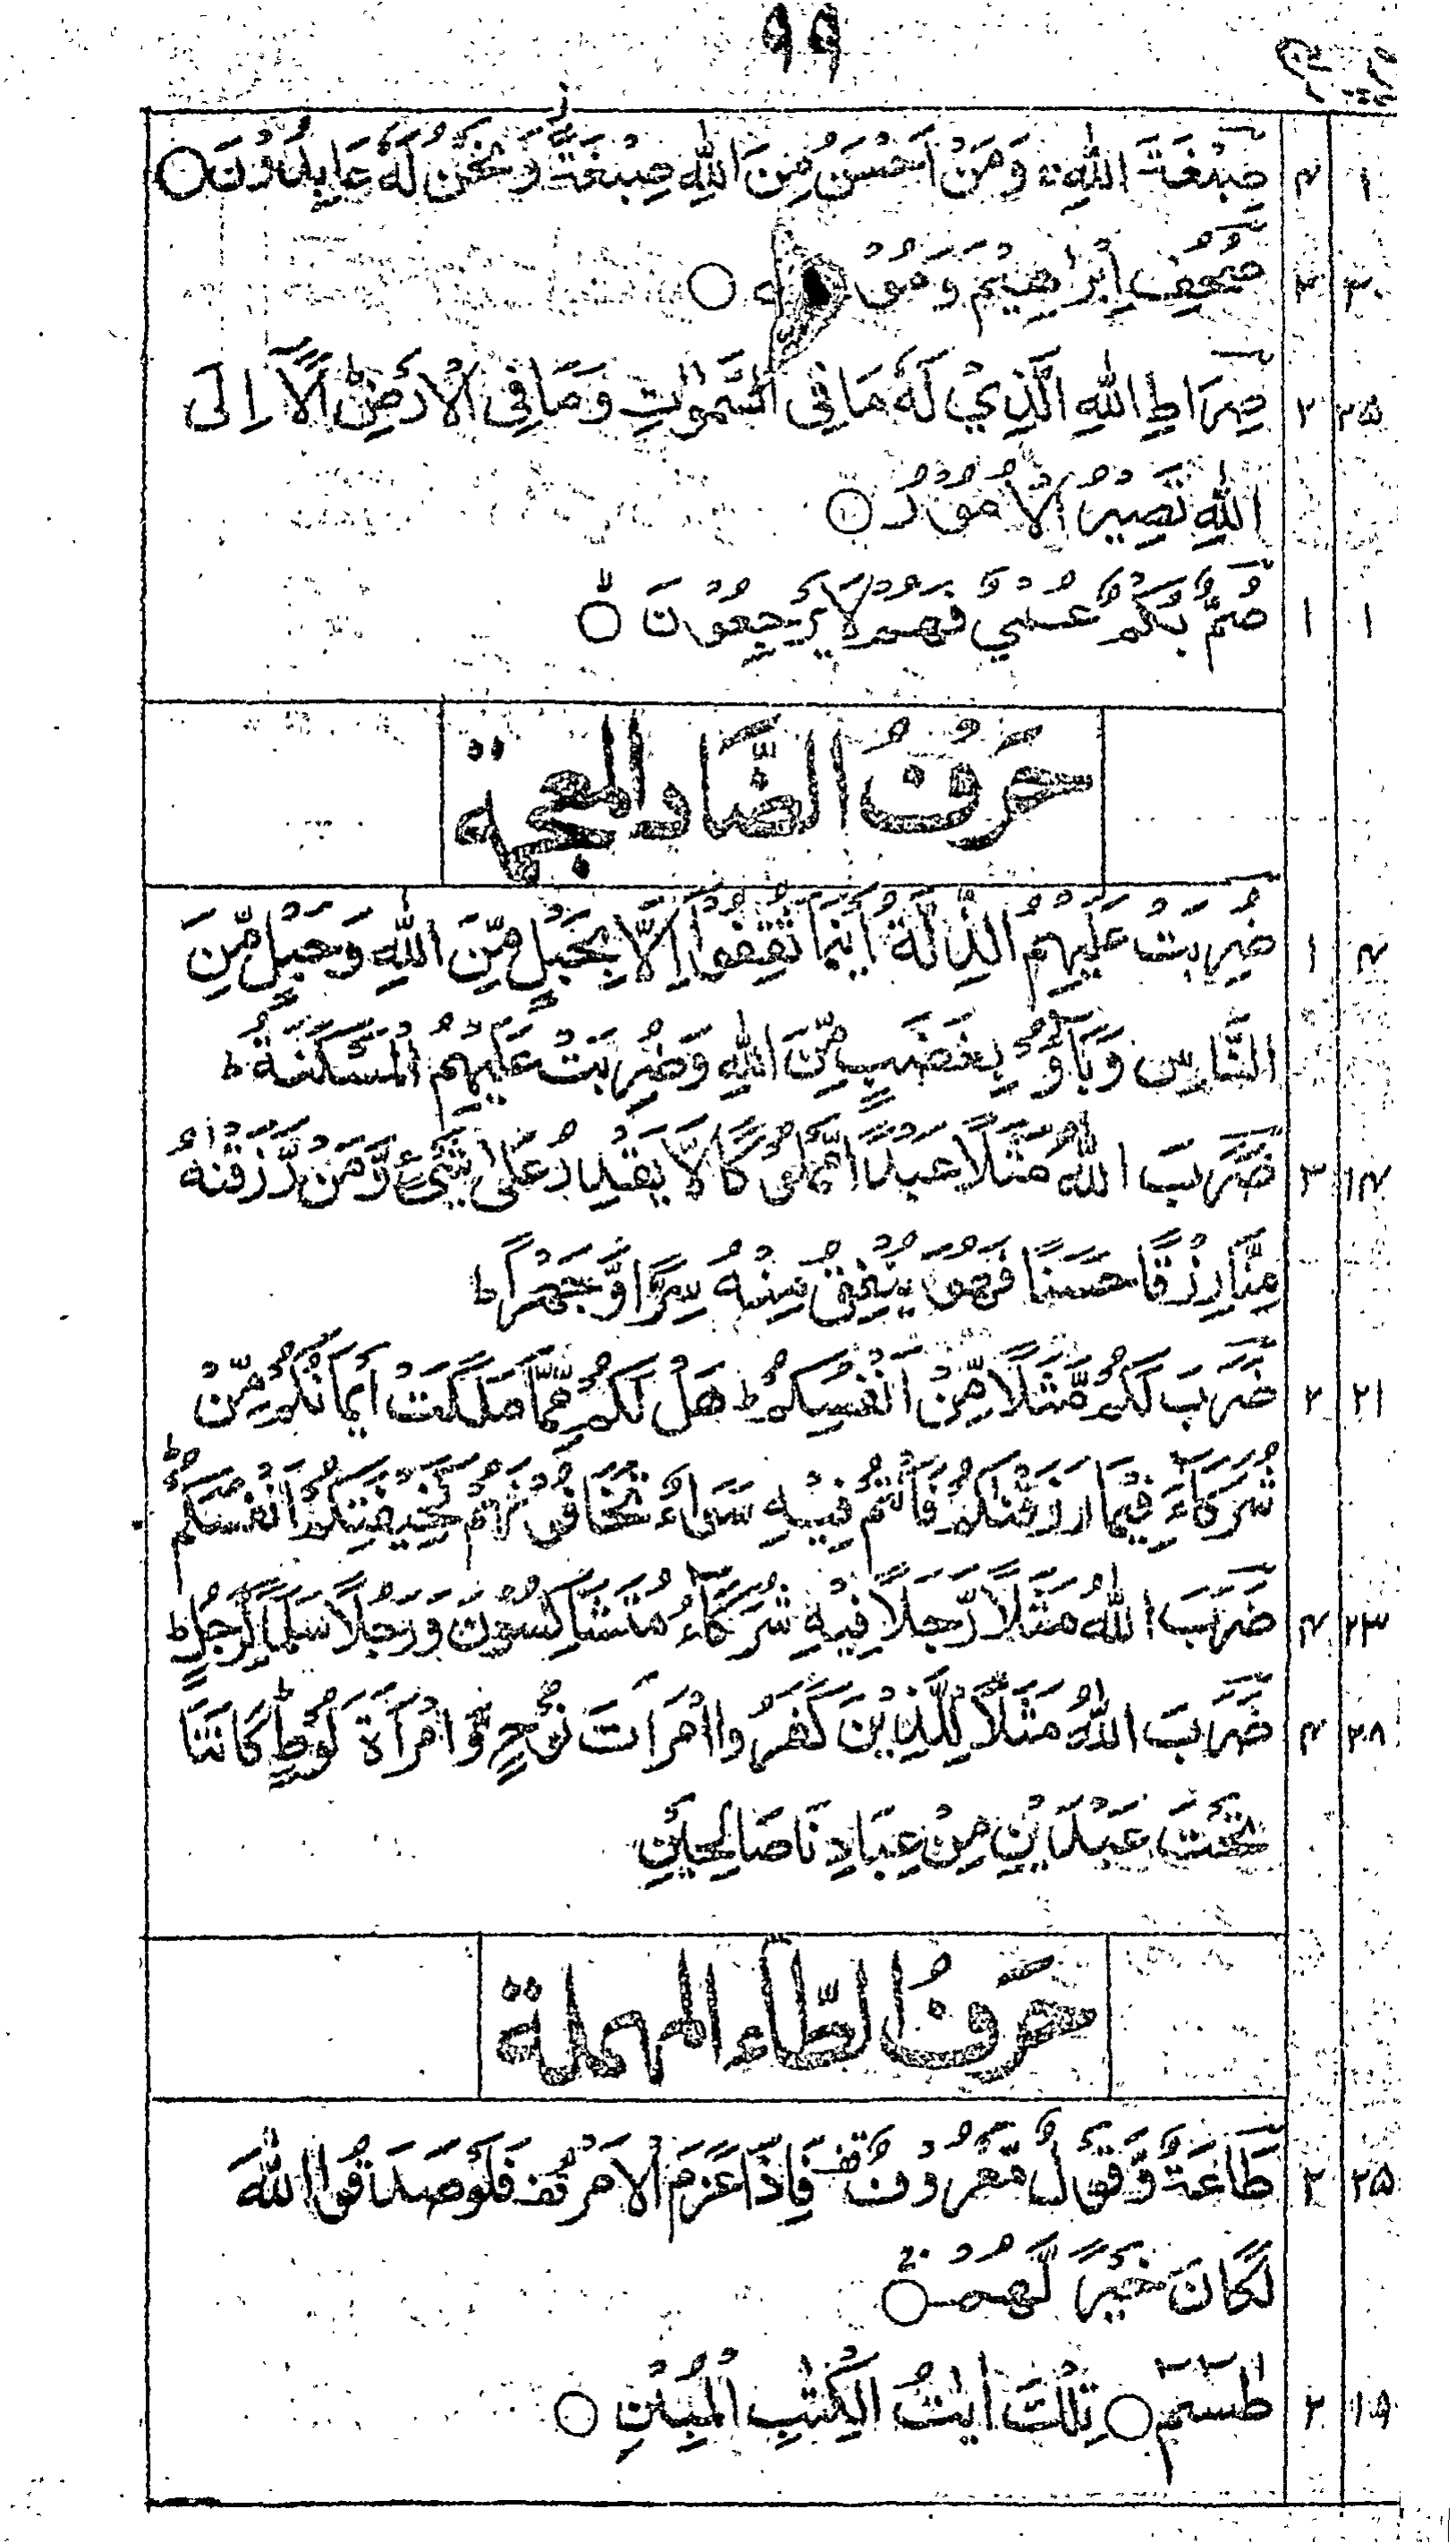 ۹۹
صِبْغَةَ اللّٰهِ ۚ وَمَنْ اَحْسَنُ مِنَ اللّٰهِ صِبْغَةً ز وَّنَحْنُ لَهٗ عَابِدُوْنَ ○ ۴ ۱
صُحُفِ اِبْرَاهِیْمَ وَمُوْ ○ ۳۰
صِرَاطِ اللّٰهِ الَّذِيْ لَهٗ مَا فِی السَّمٰوٰتِ وَمَا فِی الْاَرْضِ ط اَلَآ اِلَی ۲ ۲۵
اللّٰهِ تَصِیْرُ الْاُمُوْرُ ○
صُمٌّۢ بُكْمٌ عُمْيٌ فَهُمْ لَا یَرْجِعُوْنَ ○ لا ۱ ۱
حَرْفُ الضَّادِ المعجمة
ضُرِبَتْ عَلَیْهِمُ الذِّلَّةُ اَیْنَمَا ثُقِفُوْٓا اِلَّا بِحَبْلٍ مِّنَ اللّٰهِ وَحَبْلٍ مِّنَ ۱ ۴
النَّاسِ وَبَآؤُ بِغَضَبٍ مِّنَ اللّٰهِ وَضُرِبَتْ عَلَیْهِمُ الْمَسْكَنَةُ ط
ضَرَبَ اللّٰهُ مَثَلًا عَبْدًا مَّمْلُوْكًا لَّا یَقْدِرُ عَلٰی شَیْءٍ وَّمَنْ رَّزَقْنٰهُ ۳ ۱۴
مِنَّا رِزْقًا حَسَنًا فَهُوَ یُنْفِقُ مِنْهُ سِرًّا وَّجَهْرًا ط
ضَرَبَ لَكُمْ مَّثَلًا مِّنْ اَنْفُسِكُمْ ط هَلْ لَكُمْ مِّمَّا مَلَكَتْ اَیْمَانُكُمْ مِّنْ ۲ ۲۱
شُرَكَآءَ فِیْمَا رَزَقْنٰكُمْ فَاَنْتُمْ فِیْهِ سَوَآءٌ تَخَافُوْنَهُمْ كَخِیْفَتِكُمْ اَنْفُسَكُمْ ط
ضَرَبَ اللّٰهُ مَثَلًا رَّجُلًا فِیْهِ شُرَكَآءُ مُتَشَاكِسُوْنَ وَرَجُلًا سَلَمًا لِّرَجُلٍ ط ۴ ۲۳
ضَرَبَ اللّٰهُ مَثَلًا لِّلَّذِیْنَ كَفَرُوا امْرَاَتَ نُوْحٍ وَّامْرَاَةَ لُوْطٍ ط كَانَتَا ۴ ۲۸
تَحْتَ عَبْدَیْنِ مِنْ عِبَادِنَا صَالِحَیْنِ
حَرْفُ الطَّاء المهملة
طَاعَةٌ وَّقَوْلٌ مَّعْرُوْفٌ قف فَاِذَا عَزَمَ الْاَمْرُ قف فَلَوْ صَدَقُوا اللّٰهَ ۲ ۲۵
لَكَانَ خَیْرًا لَّهُمْ ○
طٰسٓمّٓ ○ تِلْكَ اٰیٰتُ الْكِتٰبِ الْمُبِیْنِ ○ ۲ ۱۹